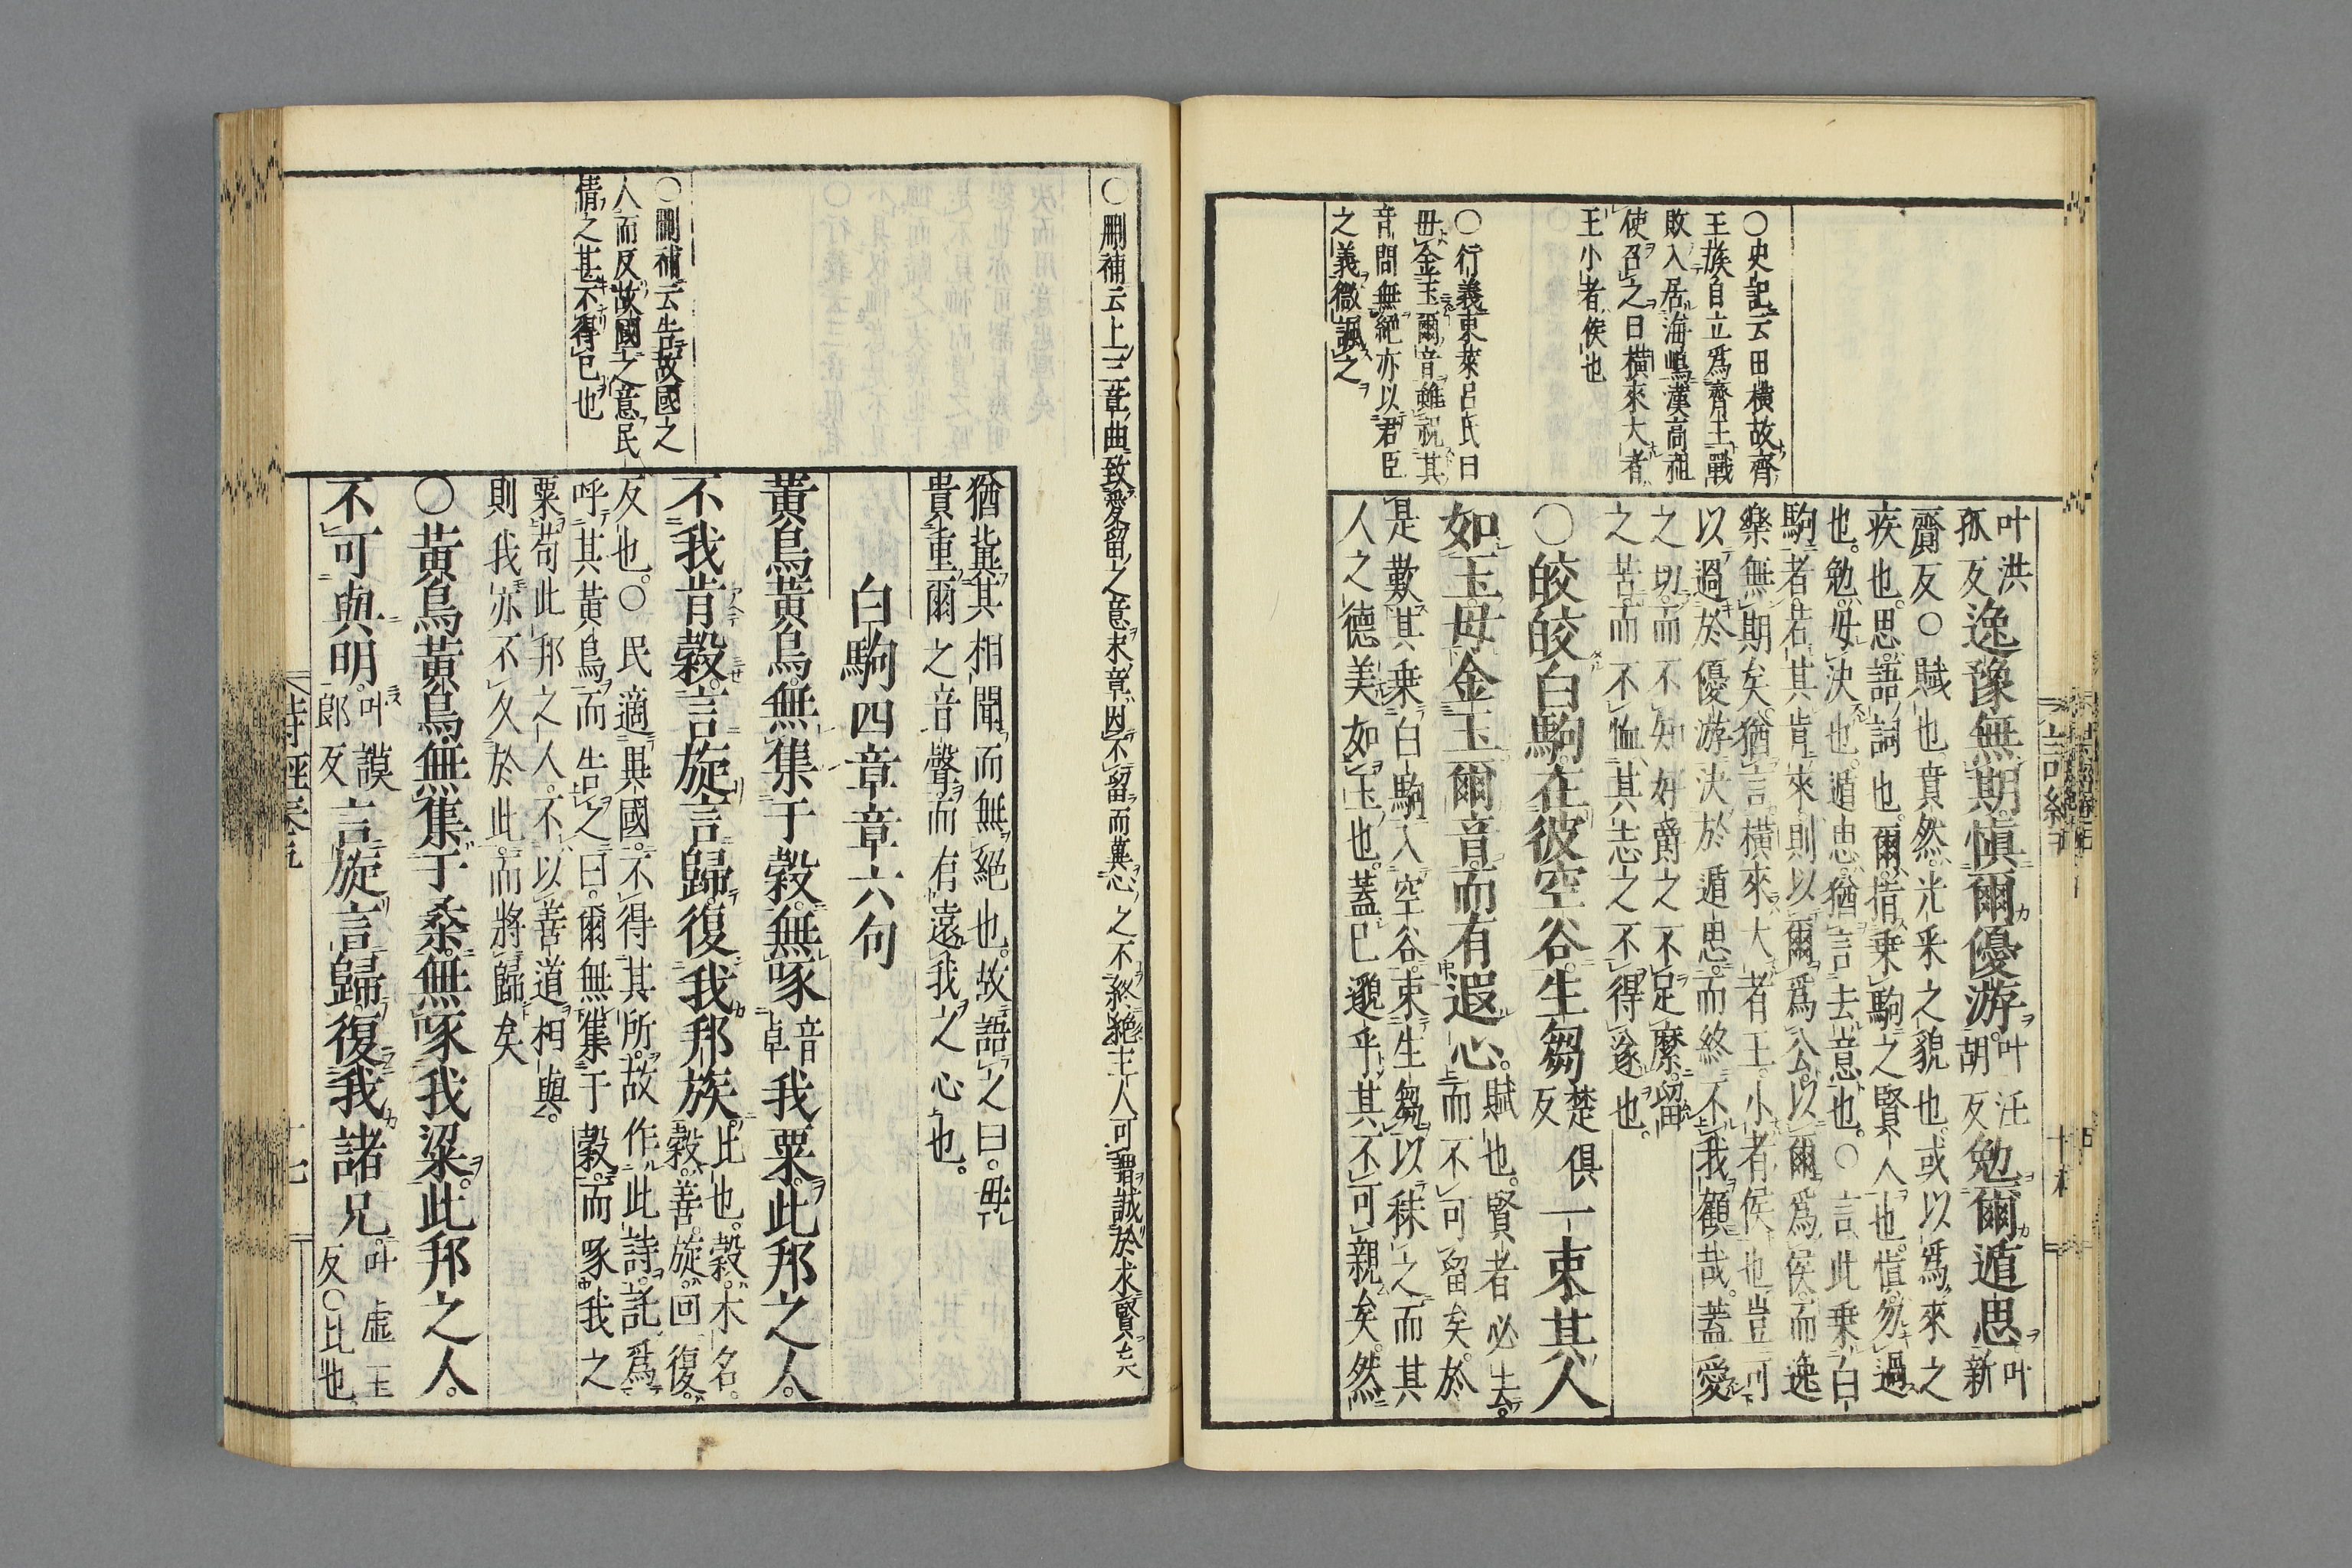 ○史記云田橫故齊
王族自立爲齊王戰
敗入居海嶋漢高祖
使召之曰橫來大者
王小者侯也
○行義東萊呂氏曰
毋金玉爾音雖祝其
音問無絕亦以君臣
之義微諷之
叶洪孤反逸豫無期。慎爾優游。叶汪胡反勉爾遁思叶新
齎反○賦也賁然。光采之貌也。或以爲來之
疾也。思。語詞也。爾。指乘駒之賢人也。慎。勿過
也。勉。毋決也。遁思。猶言去意也。○言此乘白
駒者。若其肯來。則以爾爲公。以爾爲侯。而逸
樂無期矣。猶言。橫來。大者王。小者侯也。豈可
以過於優游。決於遁思。而終不我顧哉。蓋愛
之切。而不知好爵之不足縻。留
之苦。而不恤其志之不得遂也。
○皎皎白駒。在彼空谷。生芻楚俱反一束。其人
如玉。毋金玉爾音。而有遐心。賦也。賢者必去。而不可留矣。於
是歎其乘白駒入空谷。束生芻以秣之。而其
人之德美如玉也。蓋已邈乎其不可親矣。然
○刪補云上三章曲致愛留之意末章因不留而冀心之不終絕主人可謂誠於求賢矣
○刪補云告故國之
人而反故國之意民
情之甚不得已也
猶冀其相聞而無絕也。故語之曰。毋
貴重爾之音聲。而有遠我之心也。
白駒四章章六句
黃鳥黃鳥。無集于穀。無啄音卓我粟。此邦之人。
不我肯穀。言旋言歸。復我邦族。比也。穀。木名。穀。善。旋。回。復。
反也。○民適異國。不得其所。故作此詩。託爲
呼其黃鳥而告之曰。爾無集于穀。而啄我之
粟。苟此邦之人。不以善道相與。
則我亦不久於此。而將歸矣
○黃鳥黃鳥。無集于桑。無啄我粱。此邦之人。
不可與明。叶謨郎反言旋言歸。復我諸兄。叶虛王反○比也。